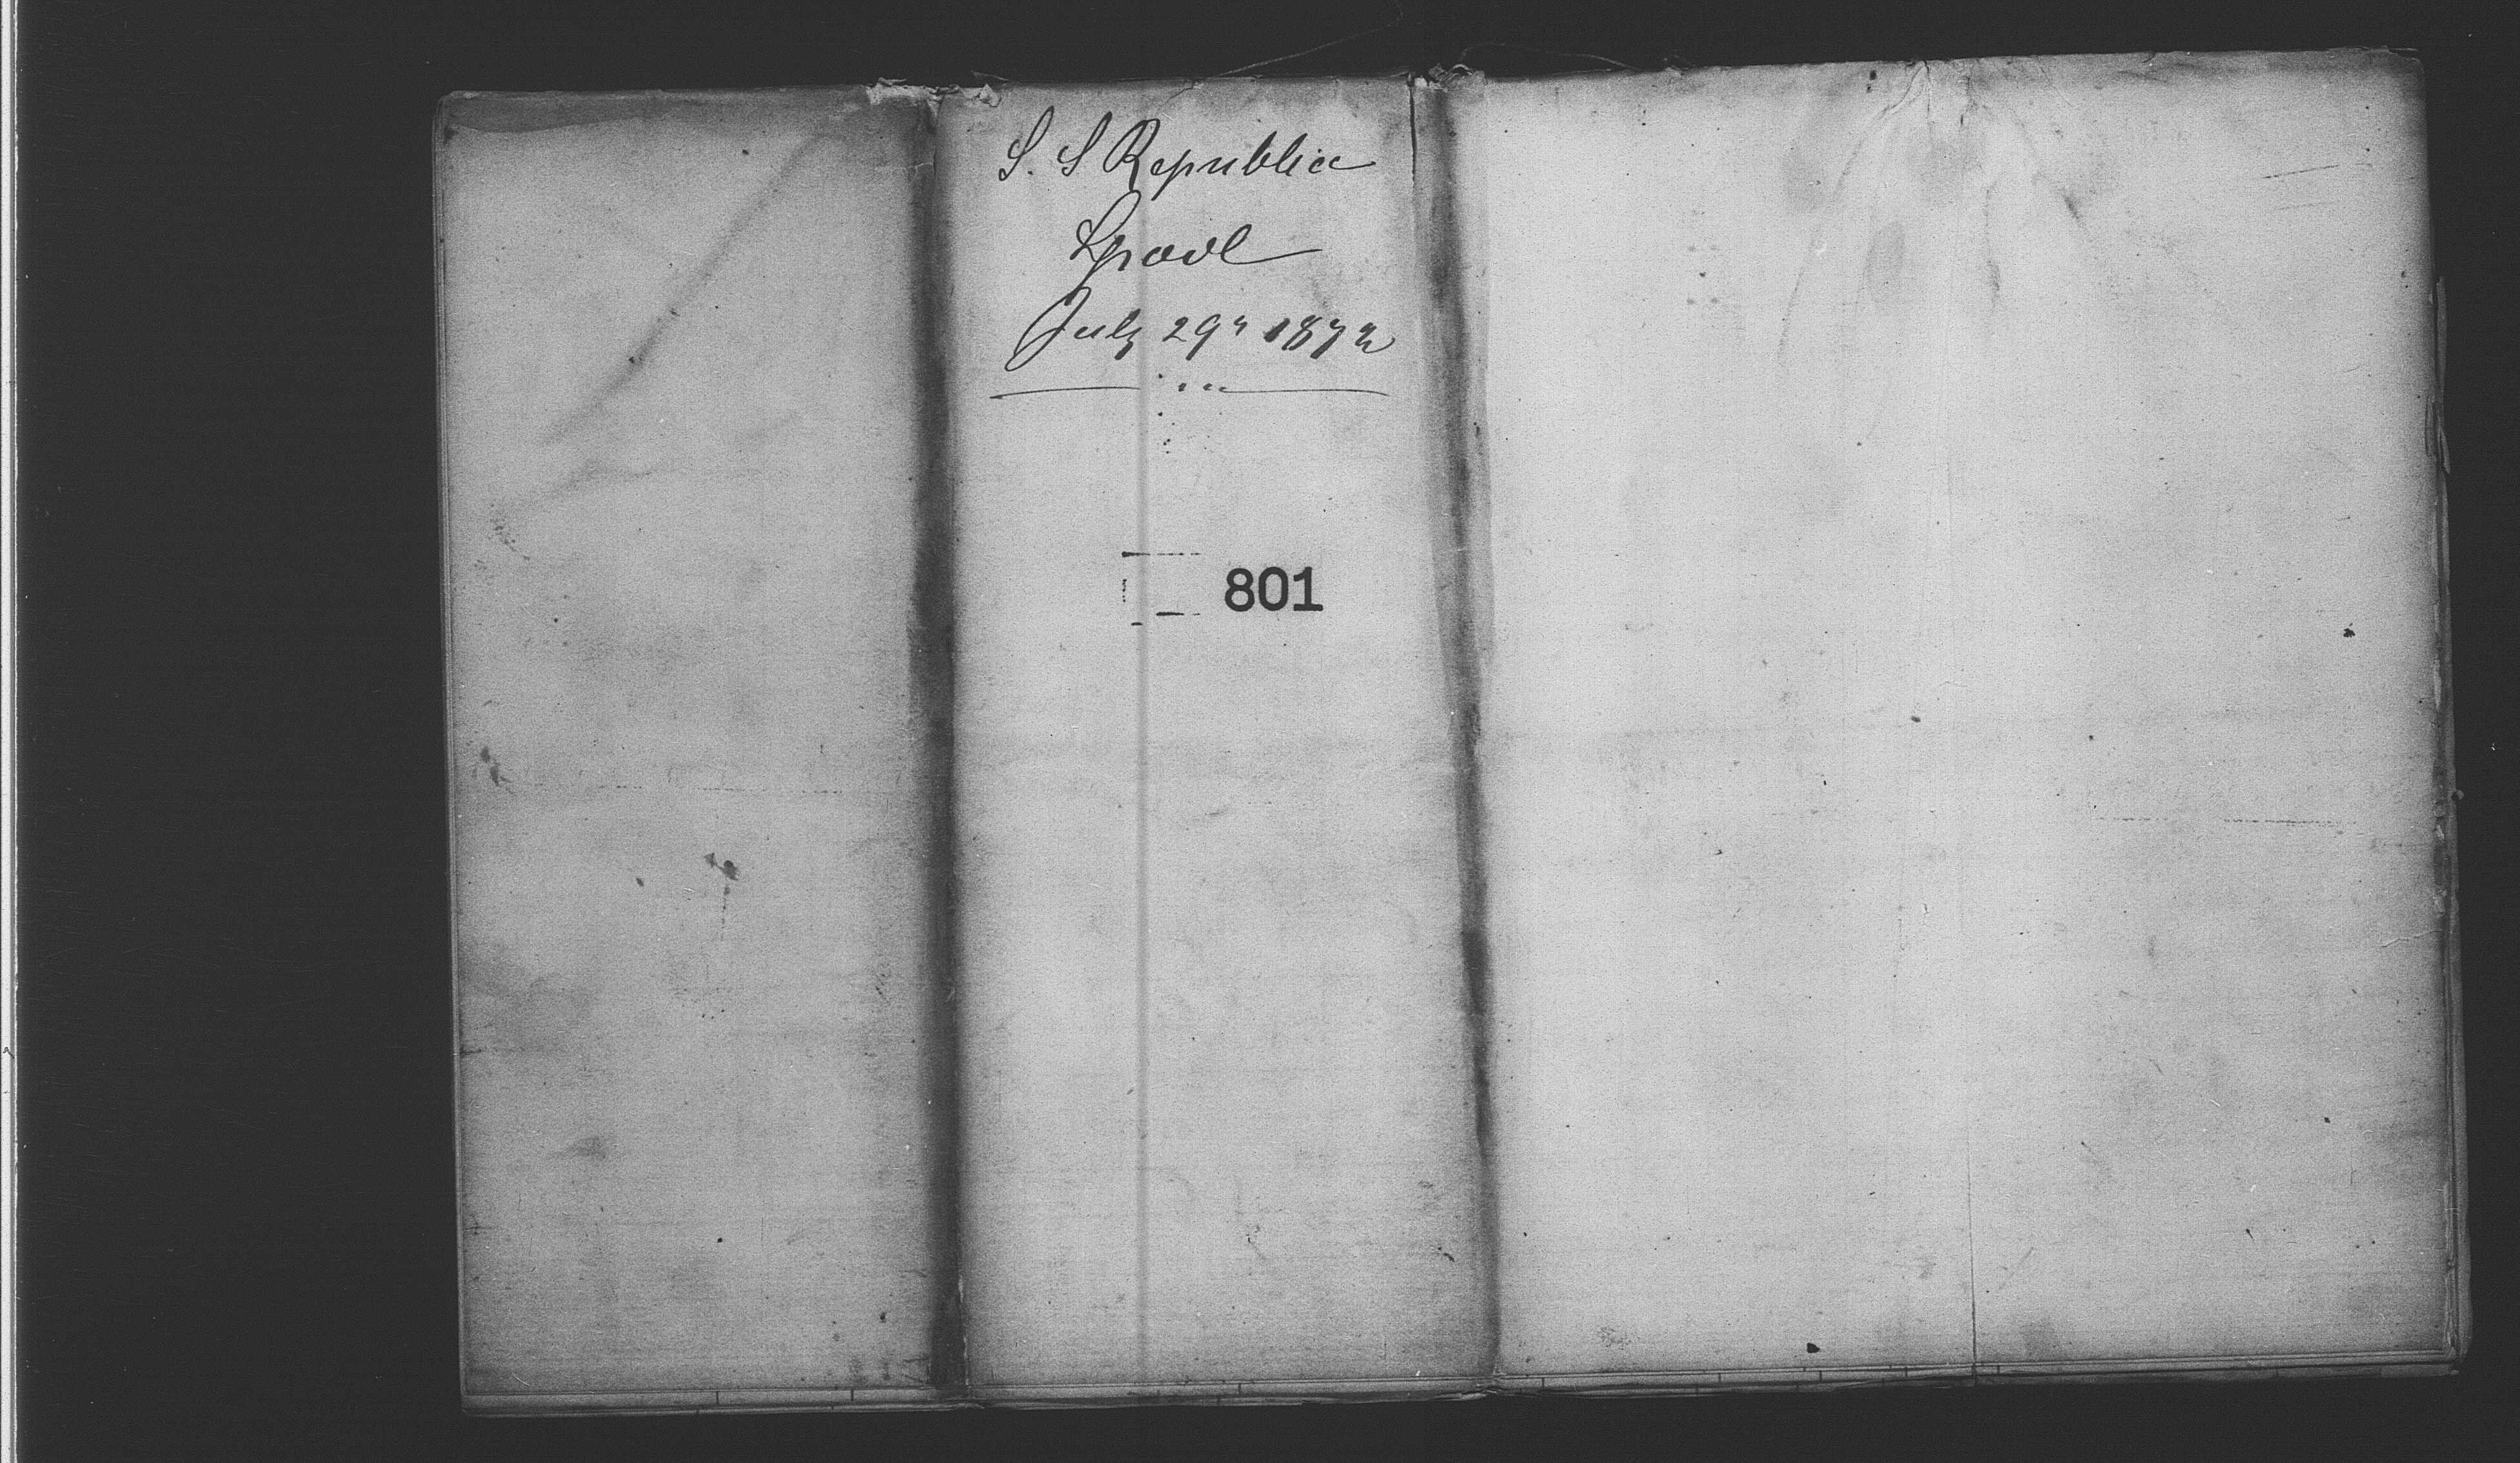 S. S Republic
Lpool
July 29" 1872
801